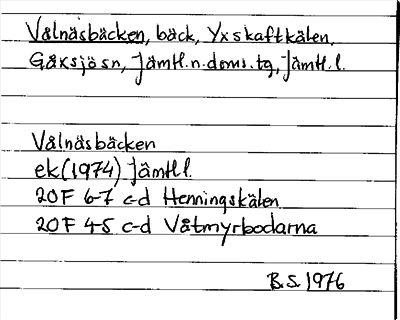 Vålnäsbäcken, bäck, Yxskaftkälen,
Gåxsjö sn, Jämtl.n.doms.tg, Jämtl.l.
Vålnäsbäcken
ek(1974) Jämtl.l.
20F 6-7 c-d Henningskälen
20F 4-5 c-d Våtmyrbodarna
B.S. 1976